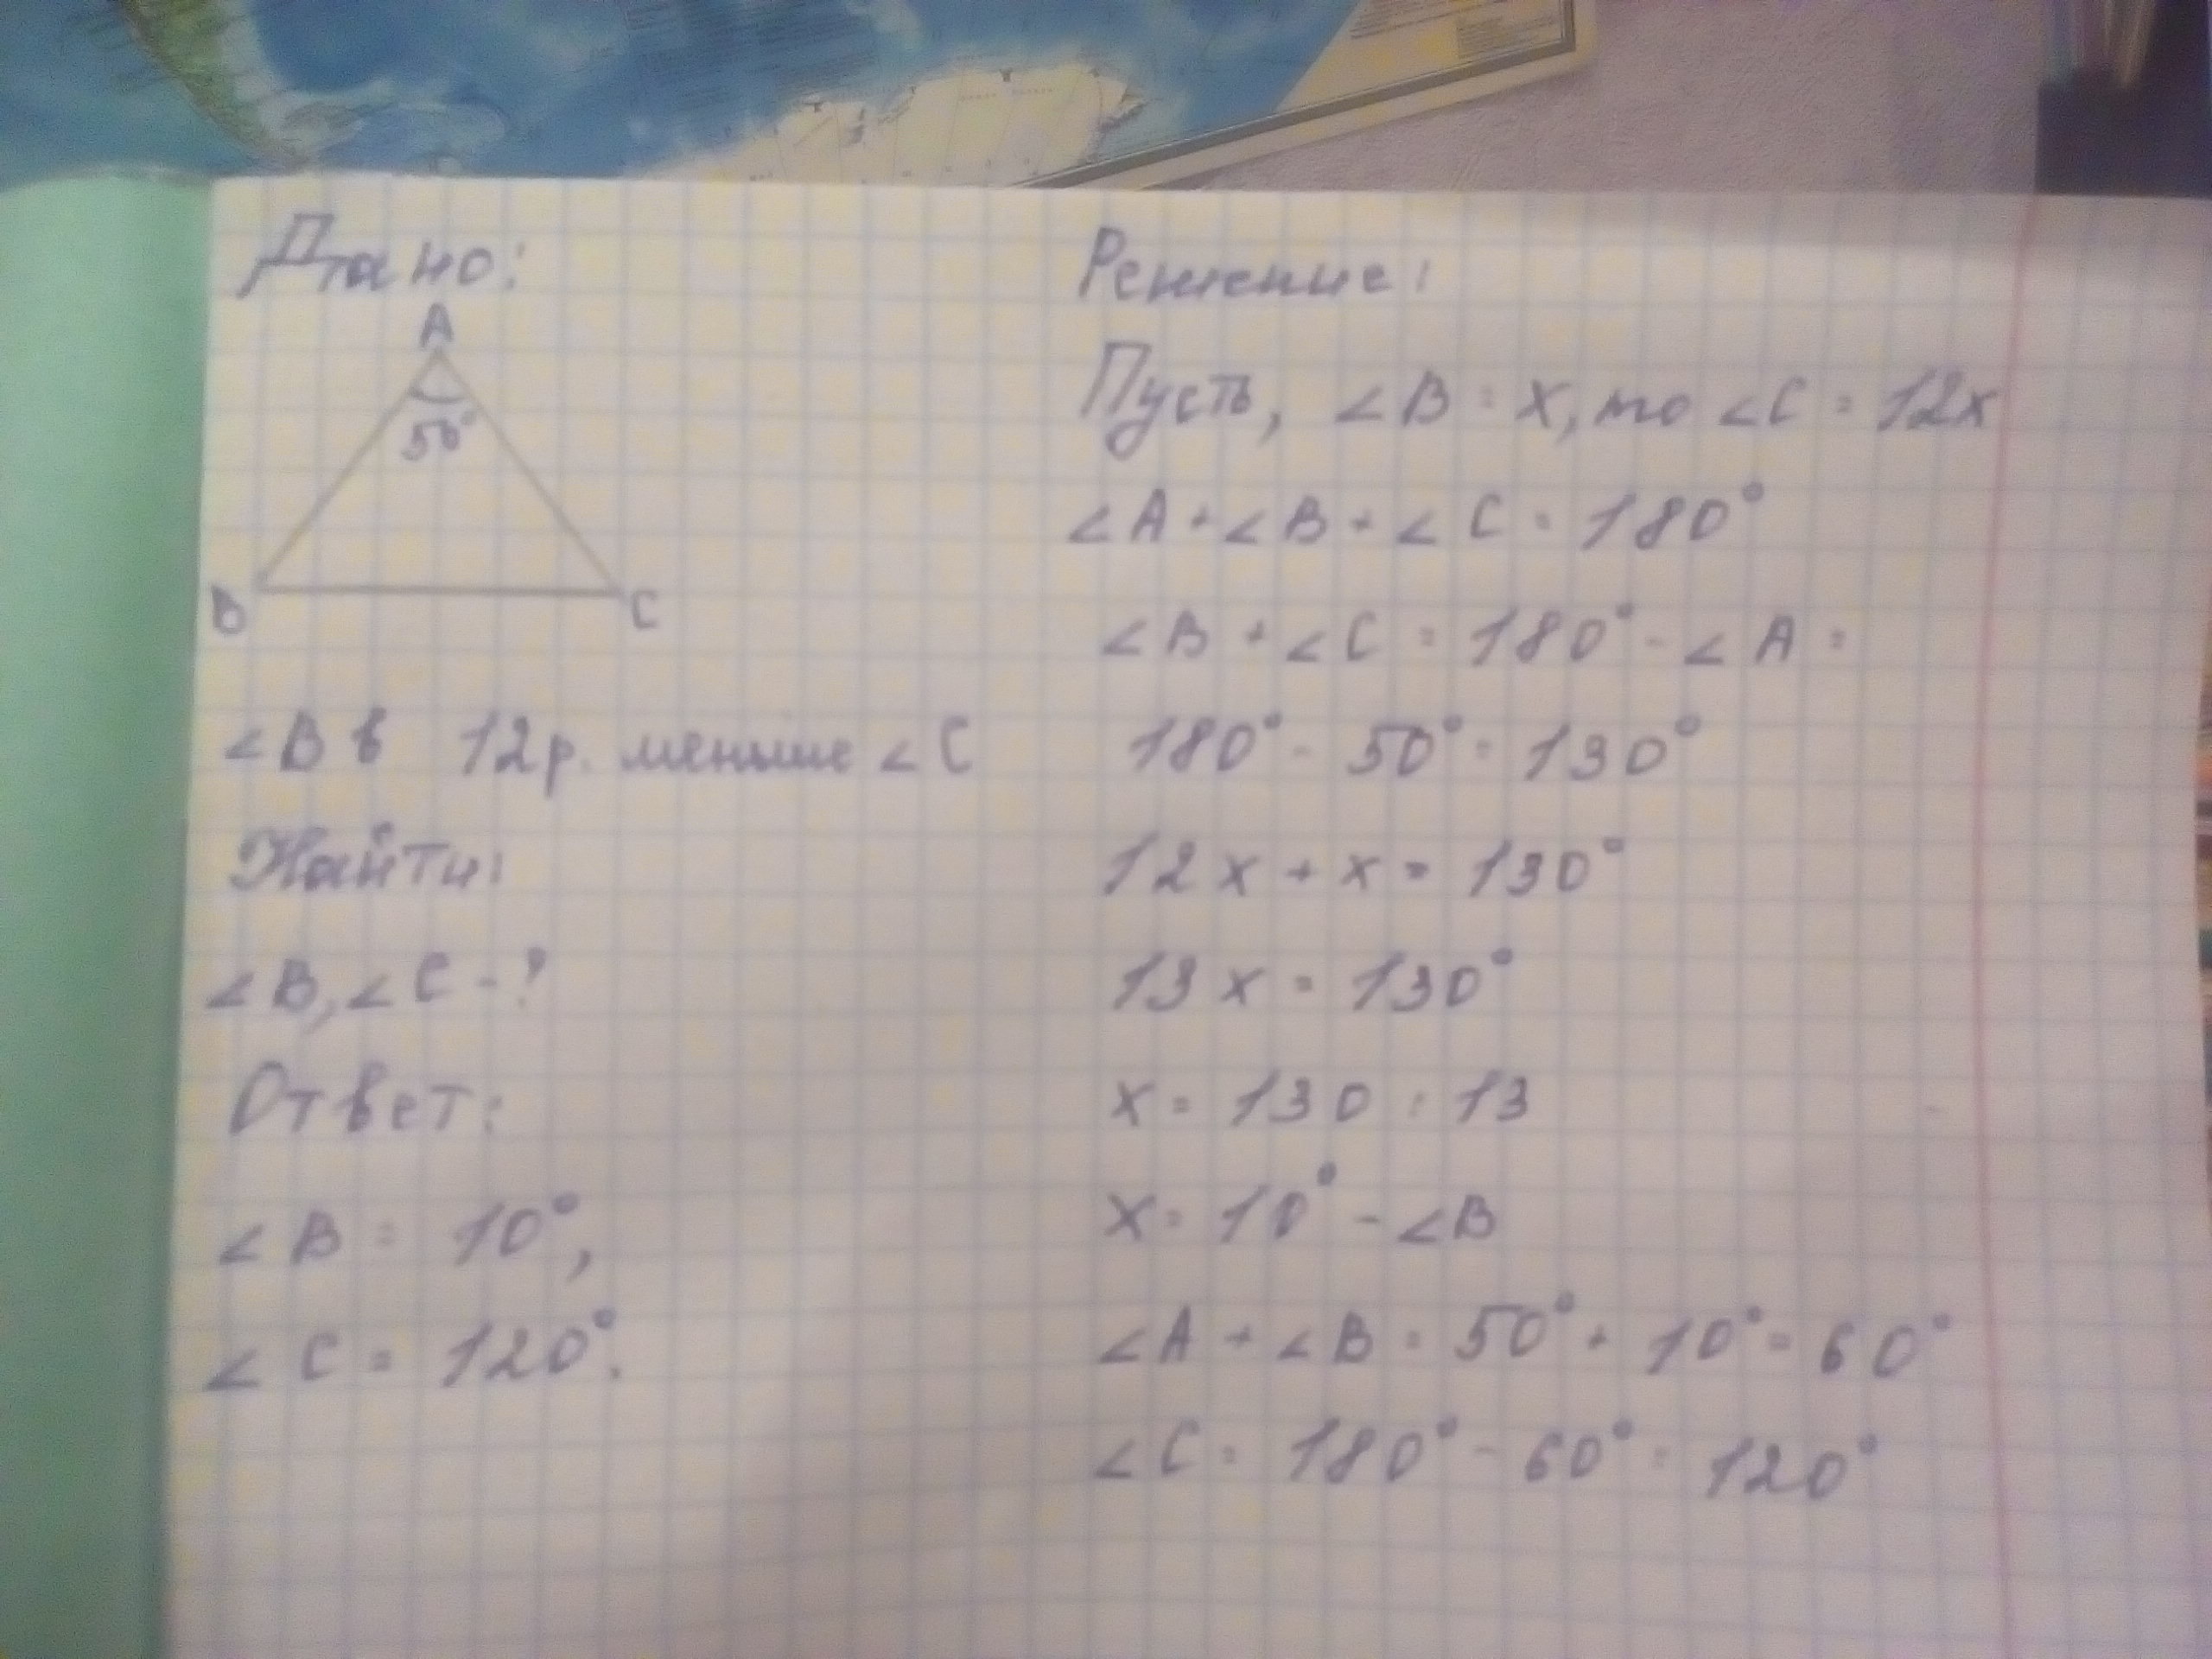 Дано:
A
50°
B
C
∠B в 12р. меньше ∠C
Найти:
∠B, ∠C - ?
Ответ:
∠B = 10°,
∠C = 120°.
Решение:
Пусть, ∠B = x, то ∠C = 12x
∠A + ∠B + ∠C = 180°
∠B + ∠C = 180° - ∠A =
180° - 50° = 130°
12x + x = 130°
13x = 130°
x = 130 : 13
x = 10° - ∠B
∠A + ∠B = 50° + 10° = 60°
∠C = 180° - 60° = 120°